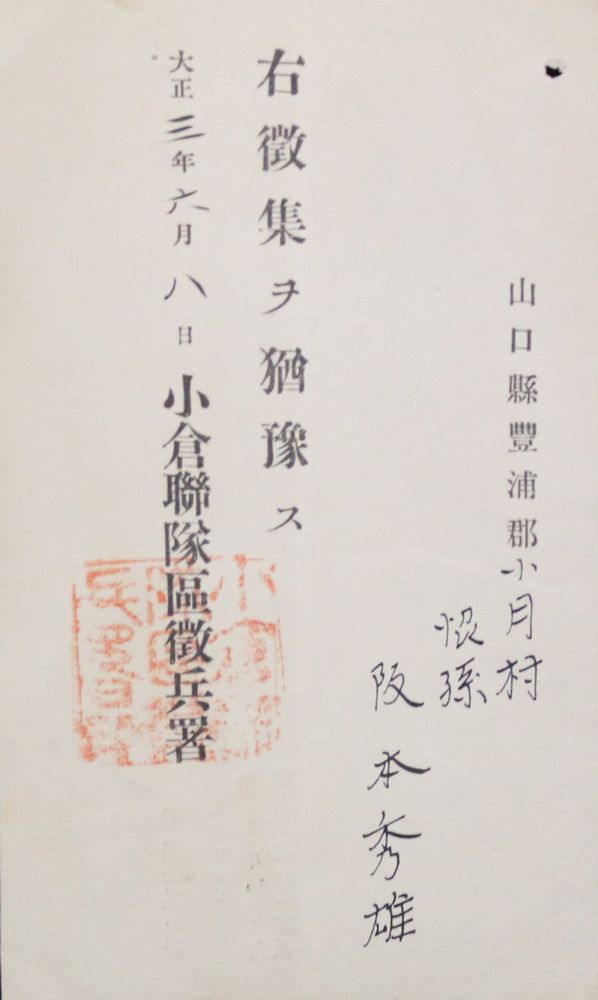 山口縣豐浦郡小月村
孫
阪本秀雄
右徵集ヲ猶豫ス
大正三年六月八日 小倉聯隊區徵兵署